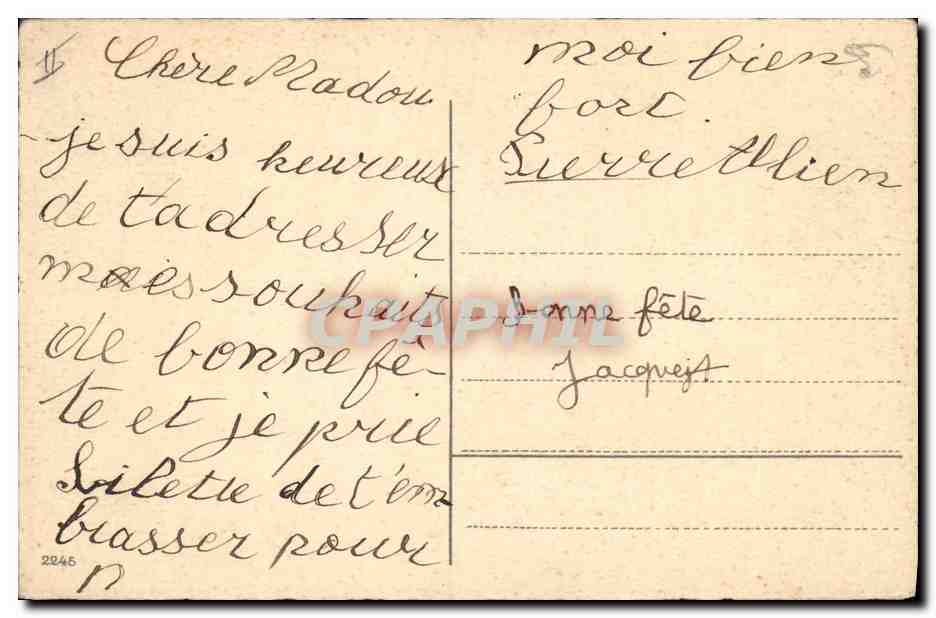 Chère Madou
je suis heureux
de t'adresser
mes souhaits
de bonne fê-
te et je prie
Lilette de t'em
brasser pour
moi bien
fort.
Pierre
Bonne fête
CPAPHIL
2245